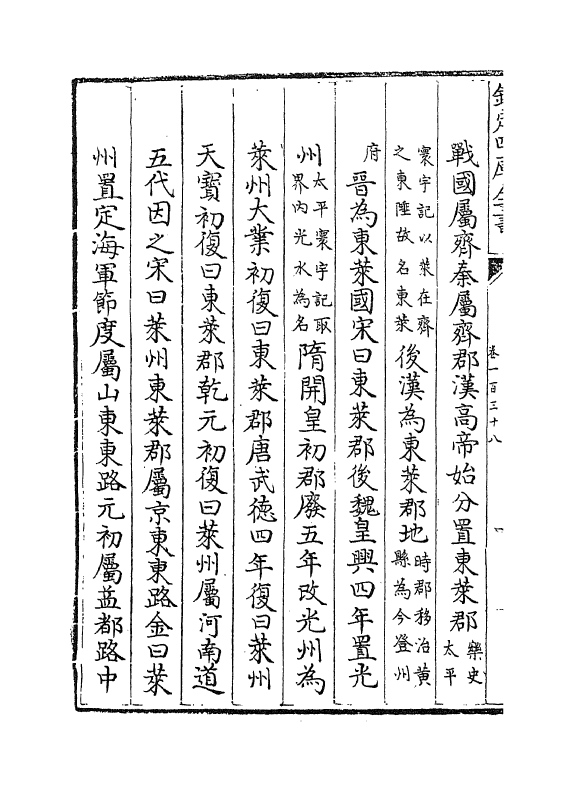 欽定四庫全書
卷一百三十八
戰國屬齊秦屬齊郡漢高帝始分置東萊郡樂史太平
寰宇記以萊在齊之東陲故名東萊後漢為東萊郡地時郡移治黄縣為今登州
府晉為東萊國宋曰東萊郡後魏皇興四年置光
州太平寰宇記取界内光水為名隋開皇初郡廢五年改光州為
萊州大業初復曰東萊郡唐武徳四年復曰萊州
天寳初復曰東萊郡乾元初復曰萊州屬河南道
五代因之宋曰萊州東萊郡屬京東東路金曰萊
州置定海軍節度屬山東東路元初屬益都路中